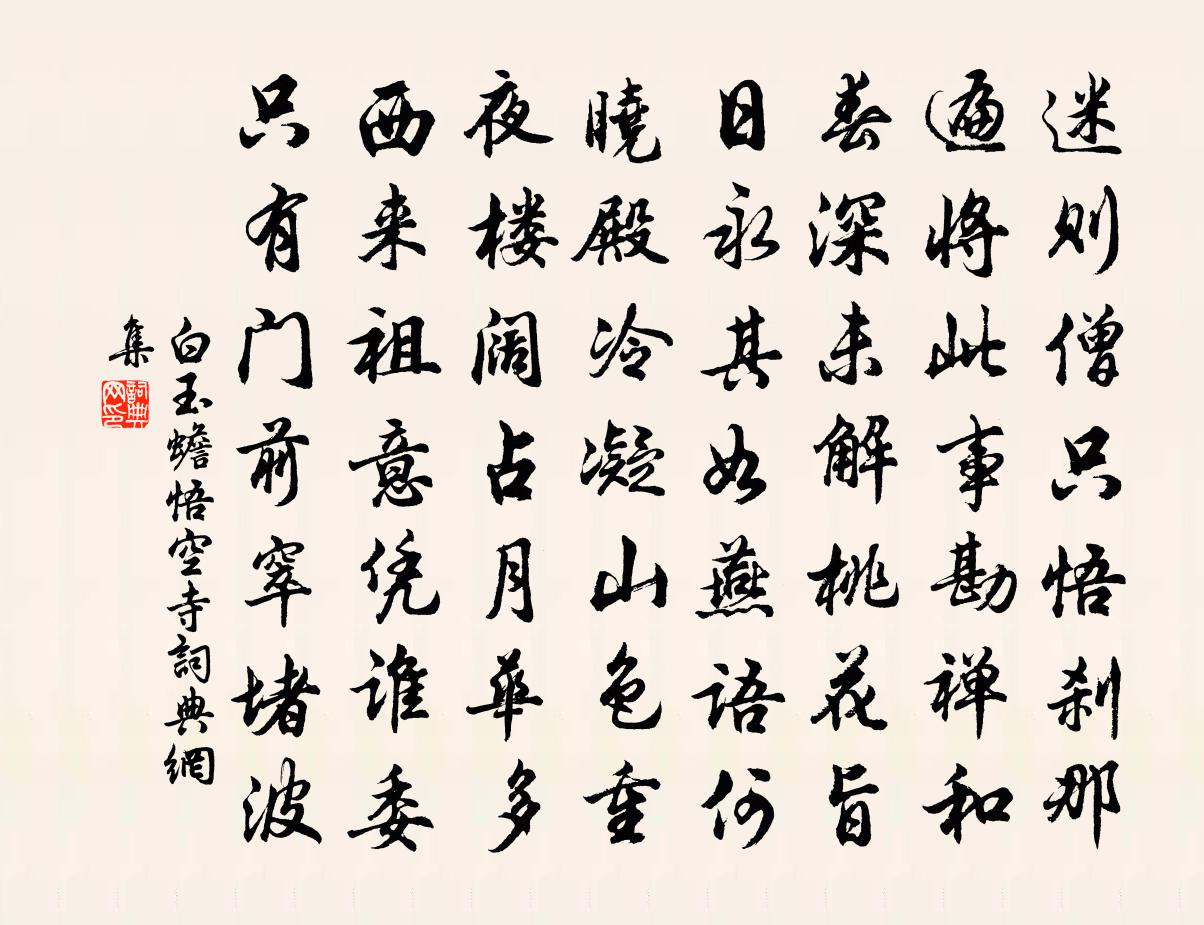 迷则僧只悟刹那
遍将此事勘禅和
春深未解桃花旨
日永其如燕语何
晓殿冷凝山色重
夜楼阔占月华多
西来祖意凭谁委
只有门前窣堵波
白玉蟾悟空寺詞典網
集
詞典网印